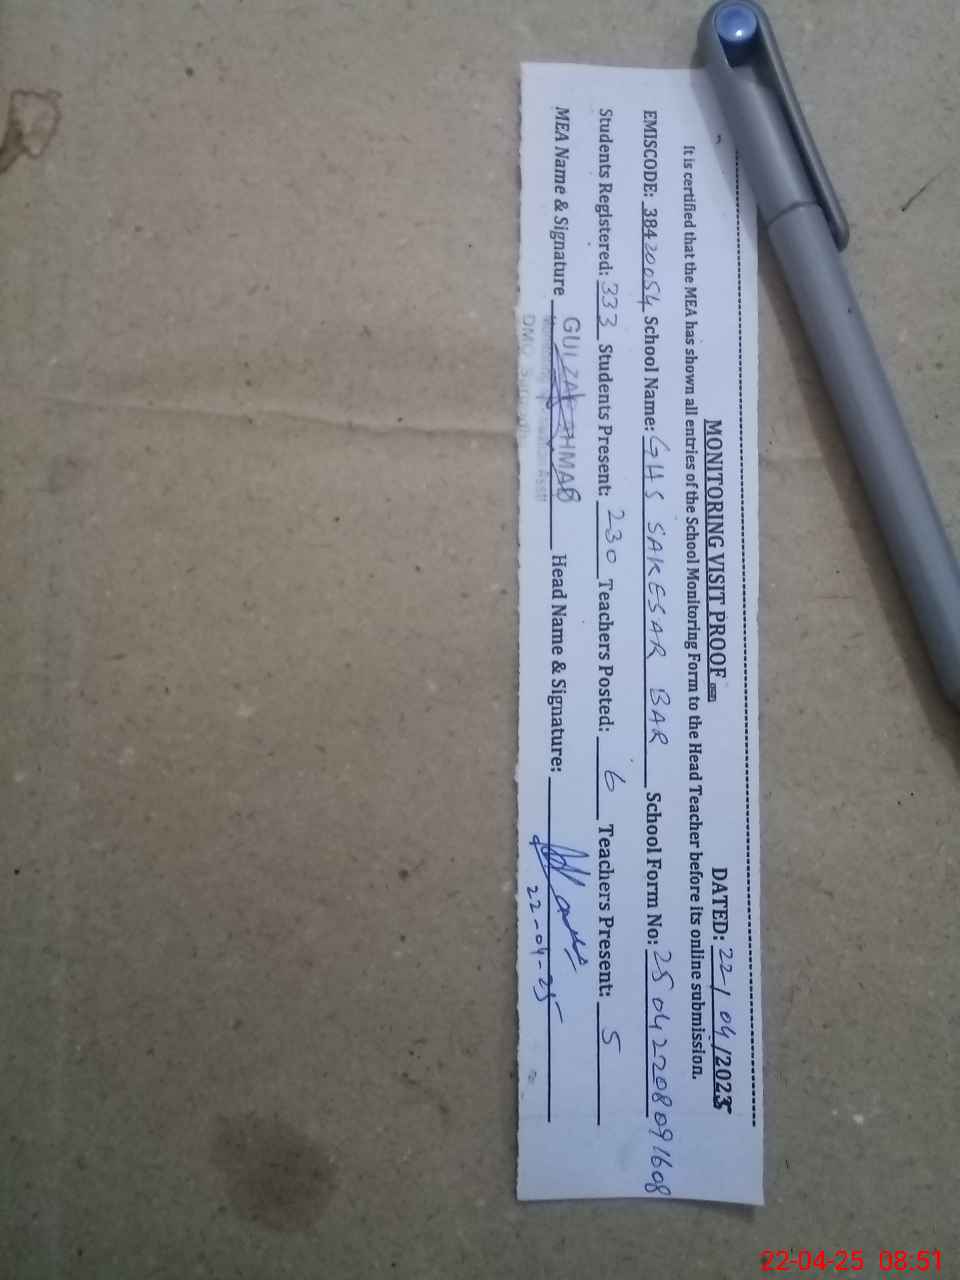 MONITORING VISIT PROOF DATED: 22/04/2025
It is certified that the MEA has shown all entries of the School Monitoring Form to the Head Teacher before its online submission.
EMISCODE: 38420054 School Name: GHS SAKESAR BAR School Form No: 250422080091608
Students Registered: 333 Students Present: 230 Teachers Posted: 6 Teachers Present: 5
MEA Name & Signature GULZAR AHMAD Head Name & Signature:
22-04-25
22-04-25 08:51